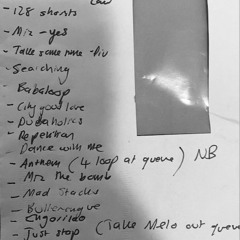 - 128 shorts
- Mix - yes
- Take some more - 
- Searching
- Babaloop
- City good love
- Dubaholics
- Repetition
Dance with me
- Anthem (4 loop at queue) NB
- Mix the bomb
- Mad Stacks
- Bullerengue
- Chorrido
- Just stop (Take Melo out queue